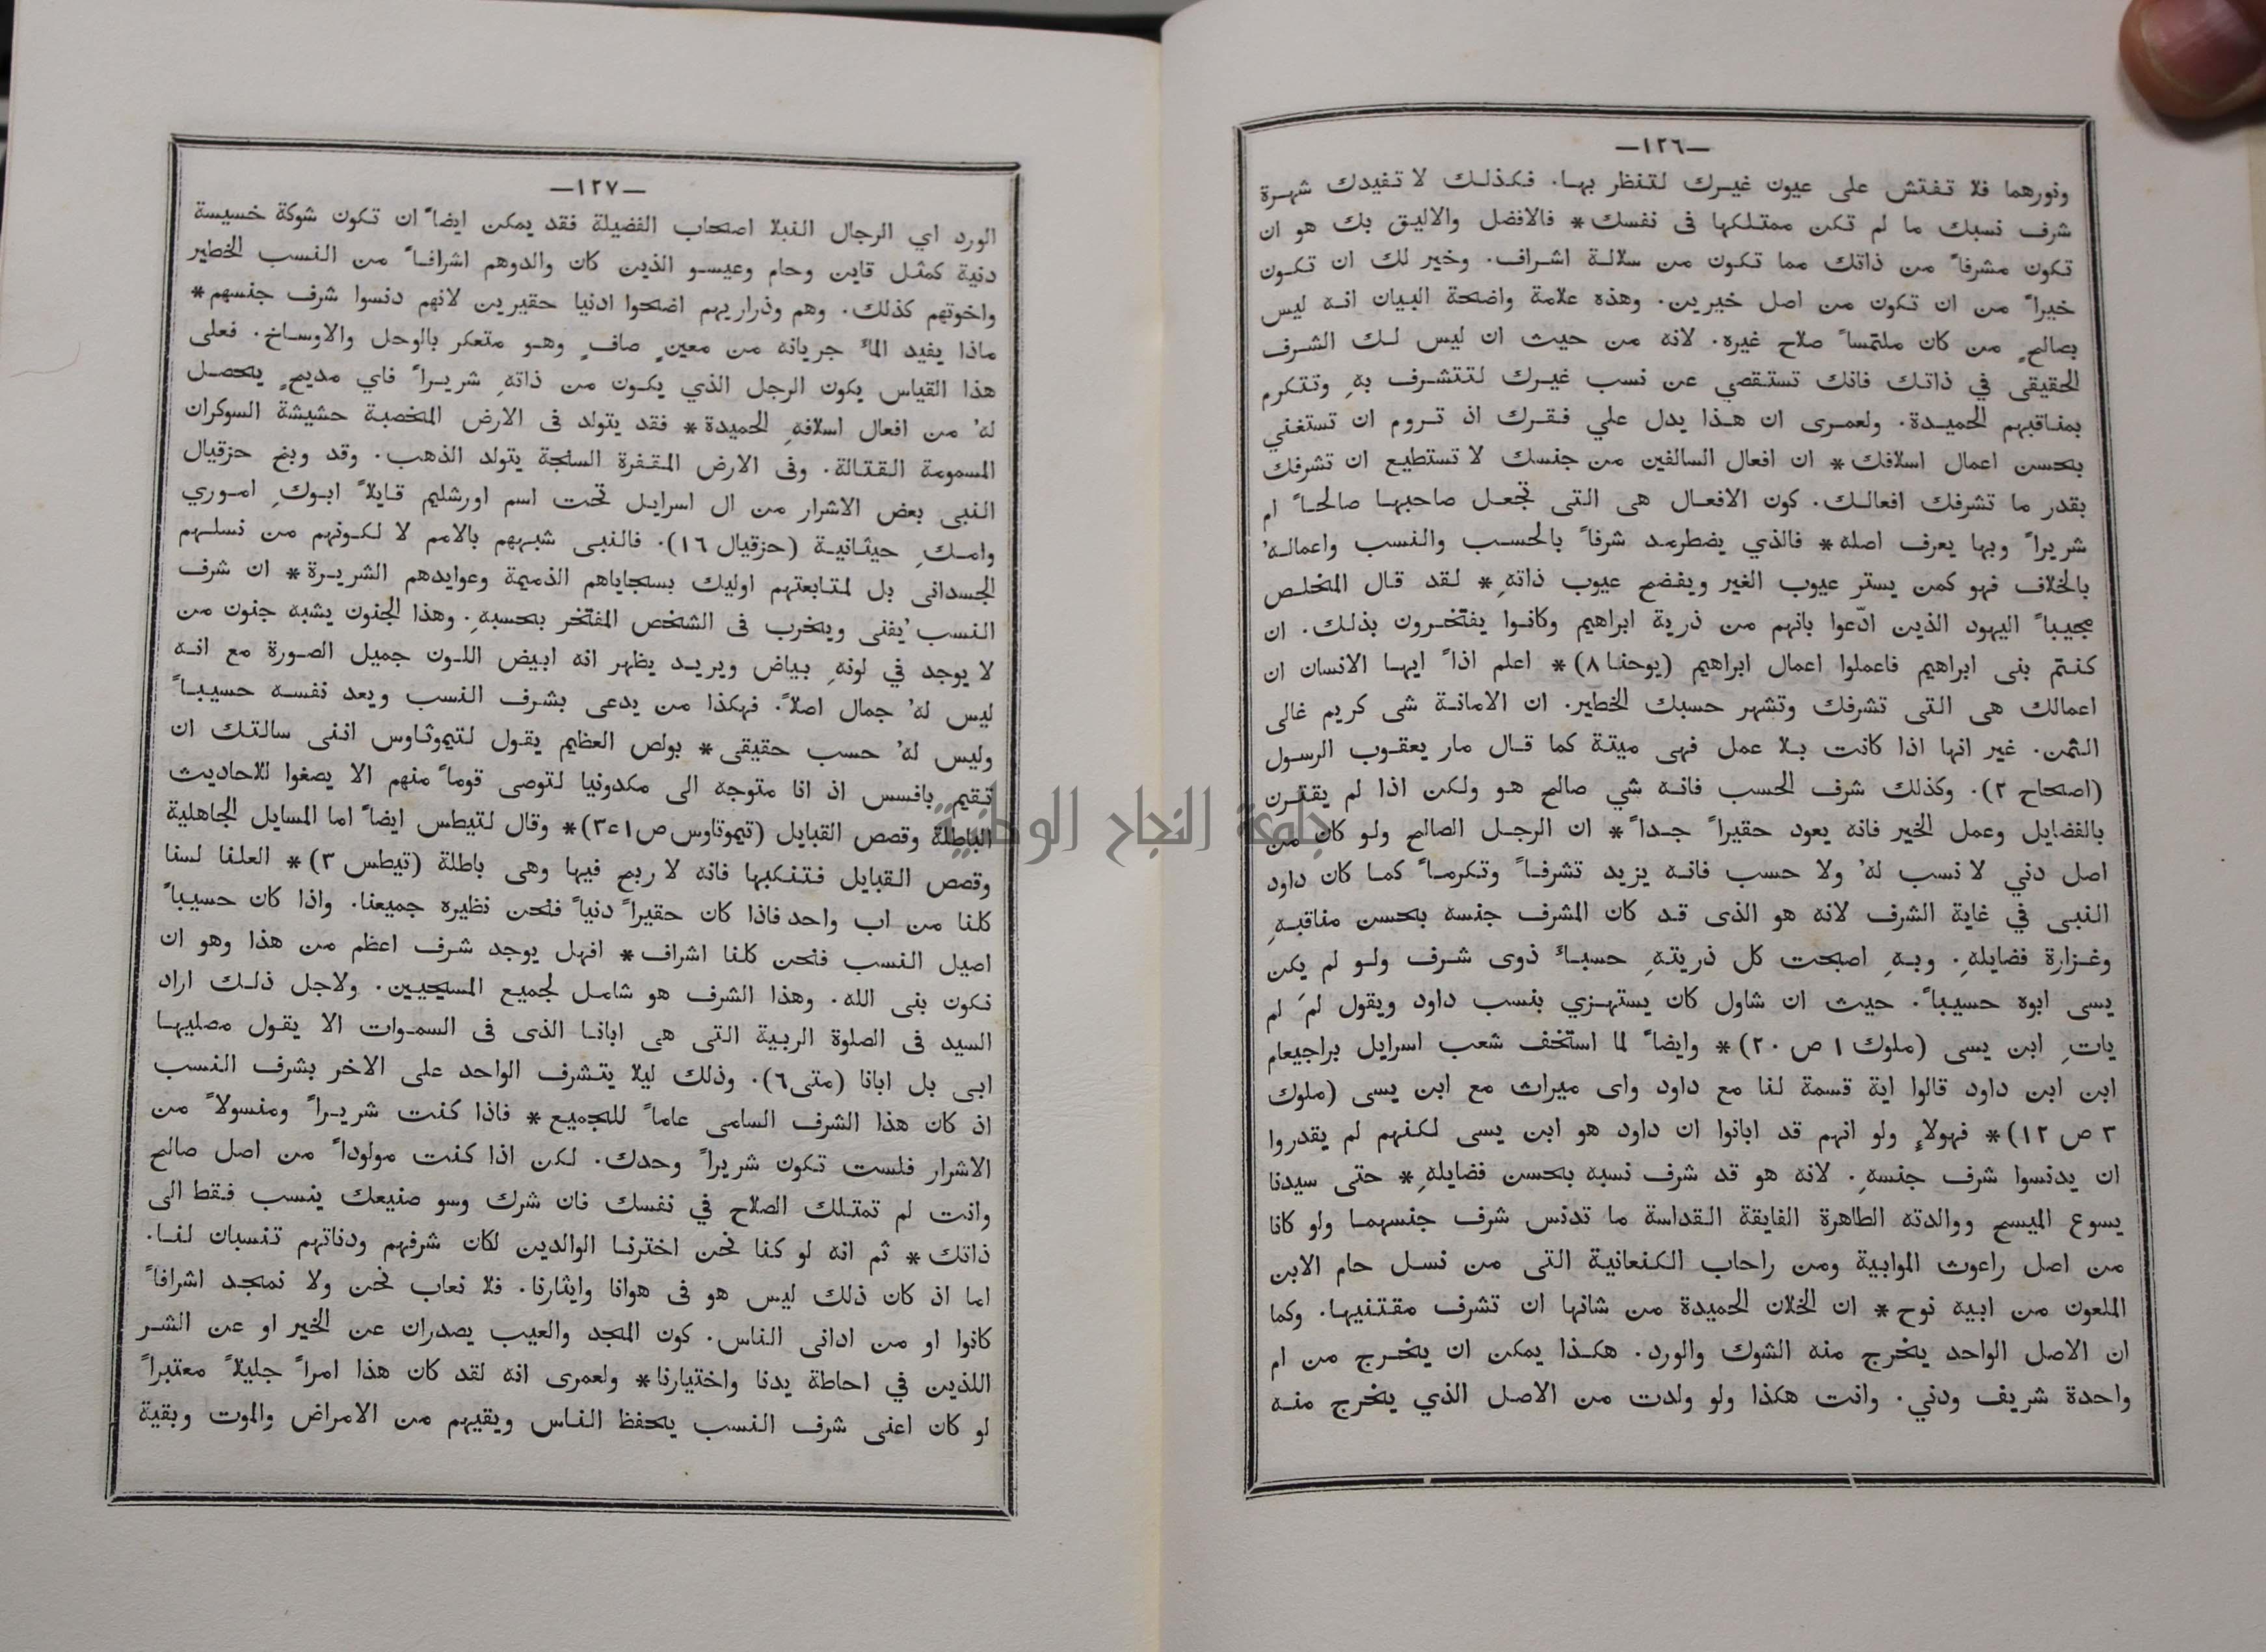 —١٢٦—
ونورهما فلا تفتش على عيون غيرك لتنظر بها. فكذلك لا تفيدك شهرة
شرف نسبك ما لم تكن ممتلكها فى نفسك* فالافضل والاليق بك هو ان
تكون مشرفاً من ذاتك مما تكون من سلالة اشراف. وخير لك ان تكون
خيراً من ان تكون من اصل خيرين. وهذه علامة واضحة البيان انه ليس
بصالحٍ من كان ملتمساً صلاح غيره. لانه من حيث ان ليس لك الشرف
الحقيقى في ذاتك فانك تستقصي عن نسب غيرك لتتشرف بهِ وتتكرم
بمناقبهم الحميدة. ولعمرى ان هذا يدل علي فقرك اذ تروم ان تستغني
بحسن اعمال اسلافك* ان افعال السالفين من جنسك لا تستطيع ان تشرفك
بقدر ما تشرفك افعالك. كون الافعال هى التى تجعل صاحبها صالحاً ام
شريراً وبها يعرف اصله* فالذي يضطرمد شرفاً بالحسب والنسب واعماله'
بالخلاف فهو كمن يستر عيوب الغير ويفضح عيوب ذاتهِ* لقد قال المخلص
مجيباً اليهود الذين ادّعوا بانهم من ذرية ابراهيم وكانوا يفتخرون بذلك. ان
كنتم بنى ابراهيم فاعملوا اعمال ابراهيم (يوحنا ٨)* اعلم اذاً ايها الانسان ان
اعمالك هى التى تشرفك وتشهر حسبك الخطير. ان الامانة شى كريم غالى
الثمن. غير انها اذا كانت بلا عمل فهى ميتة كما قال مار يعقوب الرسول
(اصحاح ٢). وكذلك شرف الحسب فانه شي صالح هو ولكن اذا لم يقترن
بالفضايل وعمل الخير فانه يعود حقيراً جداً* ان الرجل الصالح ولو كان من
اصل دني لا نسب له' ولا حسب فانه يزيد تشرفاً وتكرماً كما كان داود
النبى في غاية الشرف لانه هو الذى قد كان المشرف جنسه بحسن مناقبهِ
وغزارة فضايلهِ. وبهِ اصبحت كل ذريتهِ حسباءَ ذوى شرف ولو لم يكن
يسى ابوه حسيباً. حيث ان شاول كان يستهزي بنسب داود ويقول لمَ لم
ياتِ ابن يسى (ملوك ١ ص ٢٠)* وايضاً لما استخف شعب اسرايل براجيعام
ابن ابن داود قالوا اية قسمة لنا مع داود واى ميراث مع ابن يسى (ملوك
٣ ص ١٢)* فهولاءِ ولو انهم قد ابانوا ان داود هو ابن يسى لكنهم لم يقدروا
ان يدنسوا شرف جنسهِ. لانه هو قد شرف نسبه بحسن فضايلهِ* حتى سيدنا
يسوع الميسح ووالدته الطاهرة الفايقة القداسة ما تدنس شرف جنسهما ولو كانا
من اصل راعوث الموابية ومن راحاب الكنعانية التى من نسل حام الابن
الملعون من ابيه نوح* ان الخلان الحميدة من شانها ان تشرف مقتنيها. وكما
ان الاصل الواحد يخرج منه الشوك والورد. هكذا يمكن ان يخرج من ام
واحدة شريف ودني. وانت هكذا ولو ولدت من الاصل الذي يخرج منه
—١٢٧—
الورد اي الرجال النبلا اصحاب الفضيلة فقد يمكن ايضاً ان تكون شوكة خسيسة
دنية كمثل قاين وحام وعيسو الذين كان والدوهم اشرافاً من النسب الخطير
واخوتهم كذلك. وهم وذراريهم اضحوا ادنيا حقيرين لانهم دنسوا شرف جنسهم*
ماذا يفيد الماءَ جريانه من معينٍ صافٍ وهو متعكر بالوحل والاوساخ. فعلى
هذا القياس يكون الرجل الذي يكون من ذاتهِ شريراً فاي مديحٍ يحصل
له' من افعال اسلافهِ الحميدة* فقد يتولد فى الارض المخصبة حشيشة السوكران
المسمومة القتالة. وفى الارض المقفرة السلجة يتولد الذهب. وقد وبخ حزقيال
النبى بعض الاشرار من ال اسرايل تحت اسم اورشليم قايلاً ابوكِ اموري
وامكِ حيثانية (حزقيال ١٦). فالنبى شبههم بالامم لا لكونهم من نسلهم
الجسدانى بل لمتابعتهم اوليك بسجاياهم الذميمة وعوايدهم الشريرة* ان شرف
النسب يُفنى ويخرب فى الشخص المفتخر بحسبهِ. وهذا الجنون يشبه جنون من
لا يوجد في لونهِ بياض ويريد يظهر انه ابيض اللون جميل الصورة مع انه
ليس له' جمال اصلاً. فهكذا من يدعى بشرف النسب ويعد نفسه حسيباً
وليس له' حسب حقيقى* بولص العظيم يقول لتيموثاوس اننى سالتك ان
تقيم بافسس اذ انا متوجه الى مكدونيا لتوصى قوماً منهم الا يصغوا للاحاديث
الباطلة وقصص القبايل (تيموتاوس ص١ع٣)* وقال لتيطس ايضاً اما المسايل الجاهلية
وقصص القبايل فتنكبها فانه لا ربح فيها وهى باطلة (تيطس ٣)* العلنا لسنا
كلنا من اب واحد فاذا كان حقيراً دنياً فنحن نظيره جميعنا. واذا كان حسيباً
اصيل النسب فنحن كلنا اشراف* افهل يوجد شرف اعظم من هذا وهو ان
نكون بنى الله. وهذا الشرف هو شامل لجميع المسيحيين. ولاجل ذلك اراد
السيد فى الصلوة الربية التى هى ابانا الذى فى السموات الا يقول مصليها
ابى بل ابانا (متى٦). وذلك ليلا يتشرف الواحد على الاخر بشرف النسب
اذ كان هذا الشرف السامى عاماً للجميع* فاذا كنت شريراً ومنسولاً من
الاشرار فلست تكون شريراً وحدك. لكن اذا كنت مولوداً من اصل صالح
وانت لم تمتلك الصلاح في نفسك فان شرك وسو صنيعك ينسب فقط الى
ذاتك* ثم انه لو كنا نحن اخترنا الوالدين لكان شرفهم ودناتهم تنسبان لنا.
اما اذ كان ذلك ليس هو فى هوانا وايثارنا. فلا نعاب نحن ولا نمجد اشرافاً
كانوا او من ادانى الناس. كون المجد والعيب يصدران عن الخير او عن الشر
اللذين في احاطة يدنا واختيارنا* ولعمرى انه لقد كان هذا امراً جليلاً معتبراً
لو كان اعنى شرف النسب يحفظ الناس ويقيهم من الامراض والموت وبقية
جامعة النجاح الوطنية